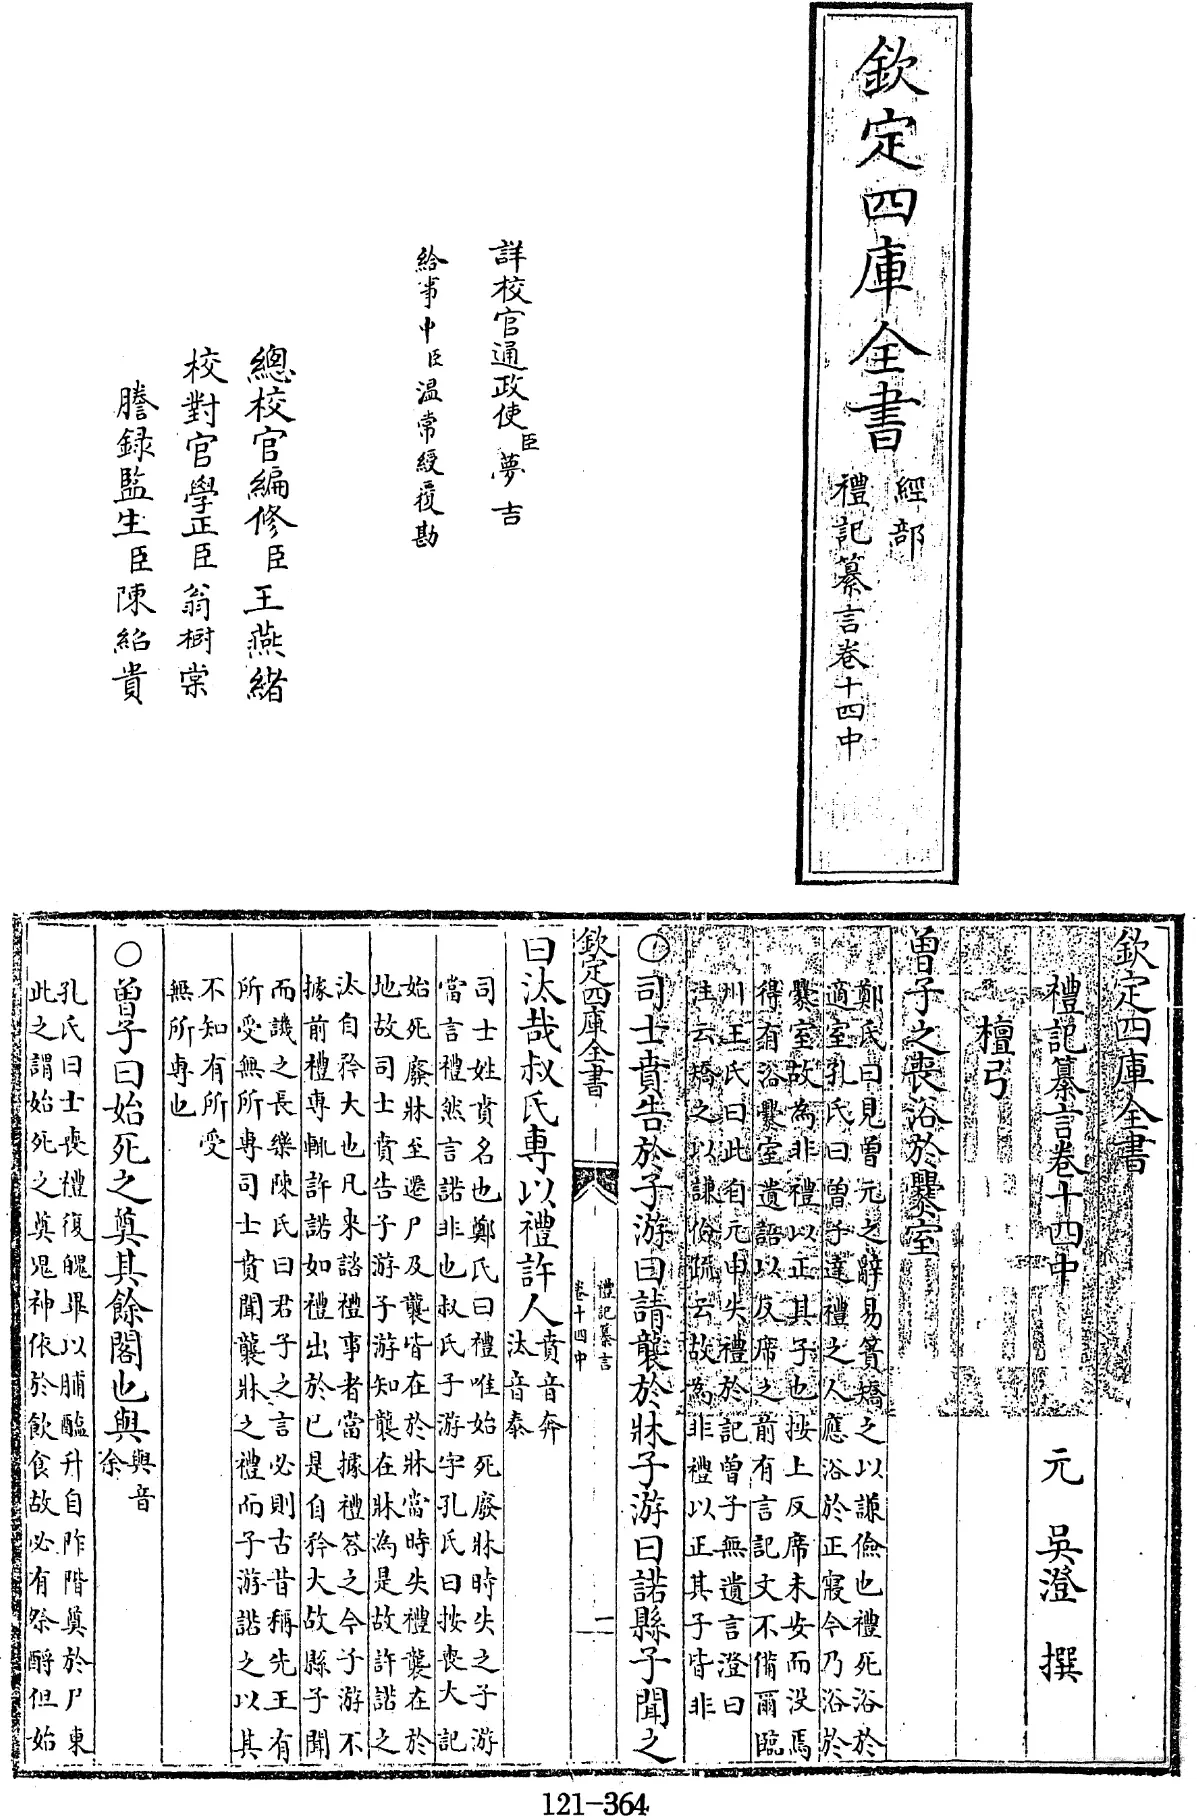 欽定四庫全書
經部
禮記纂言卷十四中
詳校官通政使臣夢吉
給事中臣温常綬覆勘
總校官編修臣王燕緒
校對官學正臣翁樹棠
謄録監生臣陳紹貴
欽定四庫全書
禮記纂言卷十四中
元 吳澄 撰
檀弓
曽子之喪浴於爨室
鄭氏曰見曽元之辭易簀矯之以謙儉也禮死浴於
適室孔氏曰曽子達禮之人應浴於正寢今乃浴於
爨室故為非禮以正其子也按上反席未安而没焉
得有浴爨室遺語以反席之前有言記文不備爾臨
川王氏曰此自元申失禮於記曽子無遺言澄曰
注云矯之以謙儉疏云故為非禮以正其子皆非
○司士賁告於子游曰請襲於牀子游曰諾縣子聞之
欽定四庫全書
禮記纂言
卷十四中
二
曰汰哉叔氏專以禮許人
賁音奔
汰音泰
司士姓賁名也鄭氏曰禮唯始死廢牀時失之子游
當言禮然言諾非也叔氏子游字孔氏曰按喪大記
始死廢牀至遷尸及襲皆在於牀當時失禮襲在於
地故司士賁告子游子游知襲在牀為是故許諾之
汰自矜大也凡來諮禮事者當據禮答之今子游不
據前禮專輒許諾如禮出於已是自矜大故縣子聞
而譏之長樂陳氏曰君子之言必則古昔稱先王有
所受無所專司士賁聞襲牀之禮而子游諾之以其
不知有所受
無所専也
○曽子曰始死之奠其餘閣也與
與音
余
孔氏曰士喪禮復魄畢以脯醢升自阼階奠於尸東
此之謂始死之奠鬼神依於飲食故必有祭酹但始
121-364